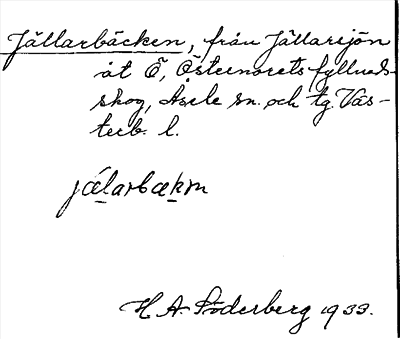 Jällarbäcken, från Jällarsjön
åt Ö, Östernorets fyllnads-
skog, Åsele sn. och tg. Väs-
terb. l.
jälarbækm
H A. Söderberg 1933.